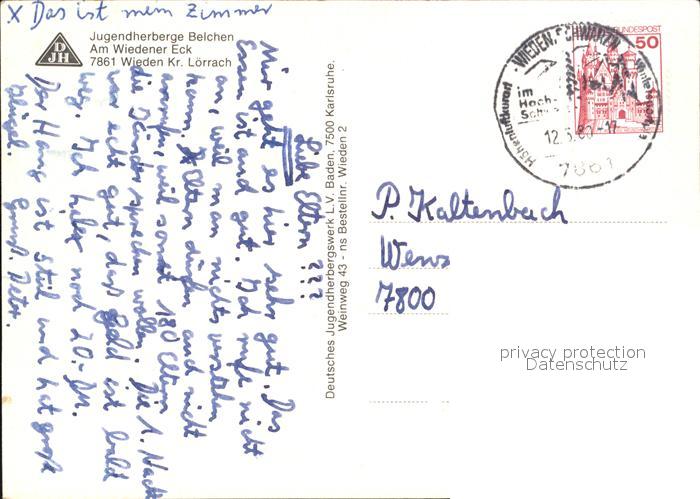 X Das ist mein Zimmer
DJH
Jugendherberge Belchen
Am Wiedener Eck
7861 Wieden Kr. Lörrach
Liebe Eltern !!!
Mir geht es hier sehr gut. Das
Essen ist auch gut. Ich rufe nicht
an, weil man nichts verstehen
kann. Eltern dürfen auch nicht
anrufen, weil sonst 180 Eltern
die Kinder sprechen wollen. Die 1. Nacht
war echt gut, das Geld ist bald
weg. Ich habe noch 20.- DM.
Der Hang ist steil und hat große
Hügel.
Gruß, Peter.
Deutsches Jugendherbergswerk L.V. Baden, 7500 Karlsruhe.
Weinweg 43 - ns Bestellnr. Wieden 2
WIEDEN, SCHWARZW.
Höhenluftkurort
im
Hoch-
12.5.80-17
7861
BUNDESPOST
50
P. Kaltenbach
7800
privacy protection
Datenschutz